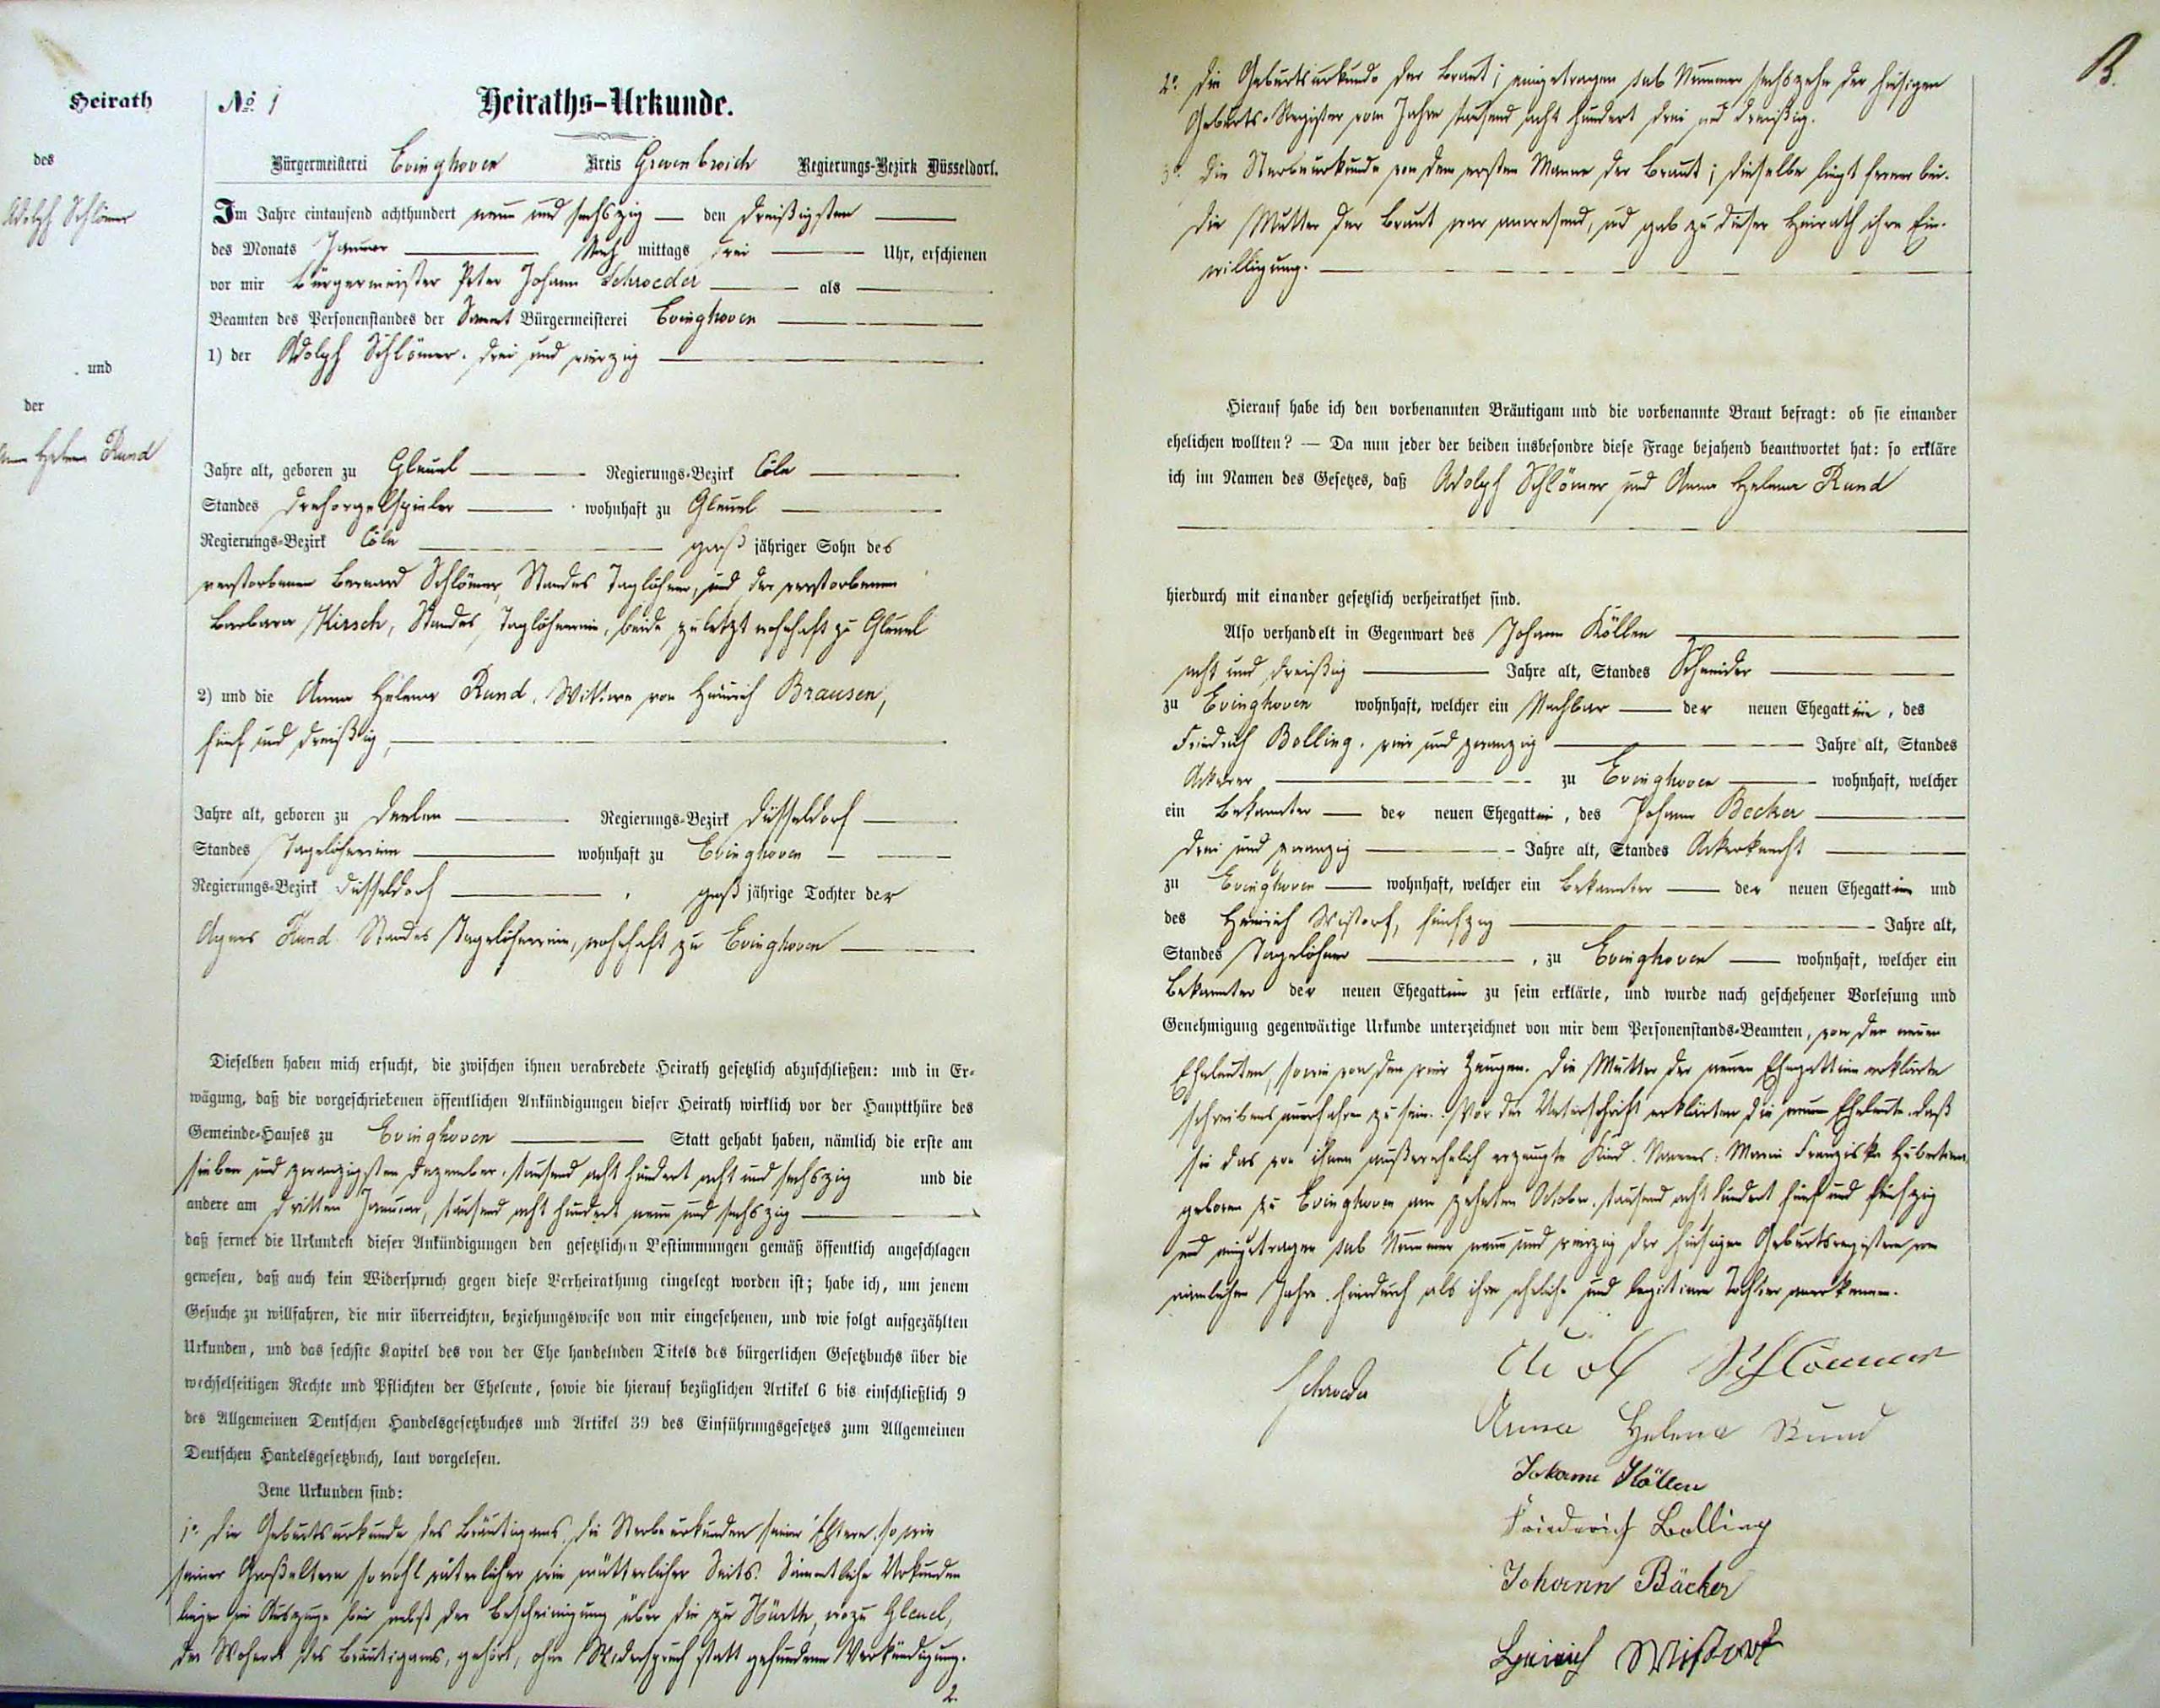 Heirath
des
Adolph Schlömer
und
der
Anna Helena Rund
No. 1 Heiraths-Urkunde.
Bürgermeisterei Evinghoven Kreis Grevenbroich Regierungs-Bezirk Düsseldorf.
Im Jahre eintausend achthundert neun und sechszig den dreißigsten
des Monats Januar Nach mittags drei Uhr, erschienen
vor mir Bürgermeister Peter Johann Schroeder als
Beamten des Personenstandes der Sammt Bürgermeisterei Evinghoven
1) der Adolph Schlömer, drei und vierzig
Jahre alt, geboren zu Gleuel Regierungs-Bezirk Cöln
Standes Drehorgelspieler wohnhaft zu Gleuel
Regierungs-Bezirk Cöln groß jähriger Sohn des
verstorbenen Bernard Schlömer, Standes Taglöhner, und der verstorbenen
Barbara Kirsch, Standes Taglöhnerin, beide zuletzt wohnhaft zu Gleuel
2) und die Anna Helena Rund, Wittwe von Heinrich Brausen,
fünf und dreißig,
Jahre alt, geboren zu Deelen Regierungs-Bezirk Düsseldorf
Standes Tagelöhnerin wohnhaft zu Evinghoven
Regierungs-Bezirk Düsseldorf groß jährige Tochter der
Agnes Rund Standes Tagelöhnerin, wohnhaft zu Evinghoven
Dieselben haben mich ersucht, die zwischen ihnen verabredete Heirath gesetzlich abzuschließen: und in Er-
wägung, daß die vorgeschriebenen öffentlichen Ankündigungen dieser Heirath wirklich vor der Hauptthüre des
Gemeinde-Hauses zu Evinghoven Statt gehabt haben, nämlich die erste am
sieben und zwanzigsten Dezember, tausend acht hundert acht und sechszig und die
andere am dritten Januar, tausend acht hundert neun und sechszig
daß ferner die Urkunden dieser Ankündigungen den gesetzlichen Bestimmungen gemäß öffentlich angeschlagen
gewesen, daß auch kein Widerspruch gegen diese Verheirathung eingelegt worden ist; habe ich, um jenem
Gesuche zu willfahren, die mir überreichten, beziehungsweise von mir eingesehenen, und wie folgt aufgezählten
Urkunden, und das sechste Kapitel des von der Ehe handelnden Titels des bürgerlichen Gesetzbuchs über die
wechselseitigen Rechte und Pflichten der Eheleute, sowie die hierauf bezüglichen Artikel 6 bis einschließlich 9
des Allgemeinen Deutschen Handelsgesetzbuches und Artikel 39 des Einführungsgesetzes zum Allgemeinen
Deutschen Handelsgesetzbuch, laut vorgelesen.
Jene Urkunden sind:
1o. die Geburtsurkunde des Bräutigams, die Sterbeurkunden seiner Eltern, so wie
seiner Großeltern sowohl väterlicher wie mütterlicher Seits. Sämmtliche Urkunden
liegen im Auszuge bei nebst der Bescheinigung über die zu Hürth, wozu Gleuel,
der Wohnort des Bräutigams, gehört, ohne Widerspruch statt gefundene Verkündigung.
2.
B.
2o. die Geburtsurkunde der Braut; eingetragen sub Nummer sechszehn der hiesigen
Geburts-Register vom Jahre tausend acht hundert drei und dreißig.
3o. die Sterbeurkunde von dem ersten Manne der Braut; dieselbe liegt ferner bei.
Die Mutter der Braut war anwesend, und gab zu dieser Heirath ihre Ein-
willigung.
Hierauf habe ich den vorbenannten Bräutigam und die vorbenannte Braut befragt: ob sie einander
ehelichen wollten? — Da nun jeder der beiden insbesondre diese Frage bejahend beantwortet hat: so erkläre
ich im Namen des Gesetzes, daß Adolph Schlömer und Anna Helena Rund
hierdurch mit einander gesetzlich verheirathet sind.
Also verhandelt in Gegenwart des Johann Köllen
acht und dreißig Jahre alt, Standes Schneider
zu Evinghoven wohnhaft, welcher ein Nachbar der neuen Ehegattin, des
Friedrich Bolling, vier und zwanzig Jahre alt, Standes
Ackerer zu Evinghoven wohnhaft, welcher
ein Bekannter der neuen Ehegattin, des Johann Becker
drei und zwanzig Jahre alt, Standes Ackerknecht
zu Evinghoven wohnhaft, welcher ein Bekannter der neuen Ehegattin und
des Heinrich Wistorf, fünfzig Jahre alt,
Standes Tagelöhner, zu Evinghoven wohnhaft, welcher ein
Bekannter der neuen Ehegattin zu sein erklärte, und wurde nach geschehener Vorlesung und
Genehmigung gegenwärtige Urkunde unterzeichnet von mir dem Personenstands-Beamten, von den neuen
Eheleuten, sowie von den vier Zeugen. Die Mutter der neuen Ehegattin erklärte
schreibensunerfahren zu sein. Vor der Unterschrift erklärten die neuen Eheleute, daß
sie das von ihnen außerehelich erzeugte Kind, Namens: Maria Franziska Hubertina,
geboren zu Evinghoven am zehnten October, tausend acht hundert fünf und fünfzig
und eingetragen sub Nummer neun und vierzig der hiesigen Geburtsregister vom
nämlichen Jahre hierdurch als ihre eheliche und legitime Tochter anerkennen.
Schroeder
Adolf Schlömer
Anna Helena Rund
Johann Köllen
Friederich Bolling
Johann Bäcker
Heinrich Wistorf